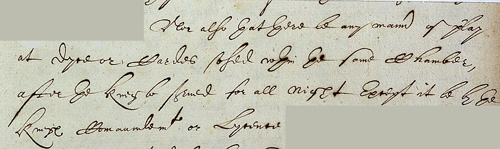 Nor also that there be any maner of Play
at Dyce or Cardes used wthin the same Chamber,
after the King be served for all Night Except it be by the
Kings Comaundemt or Lycence